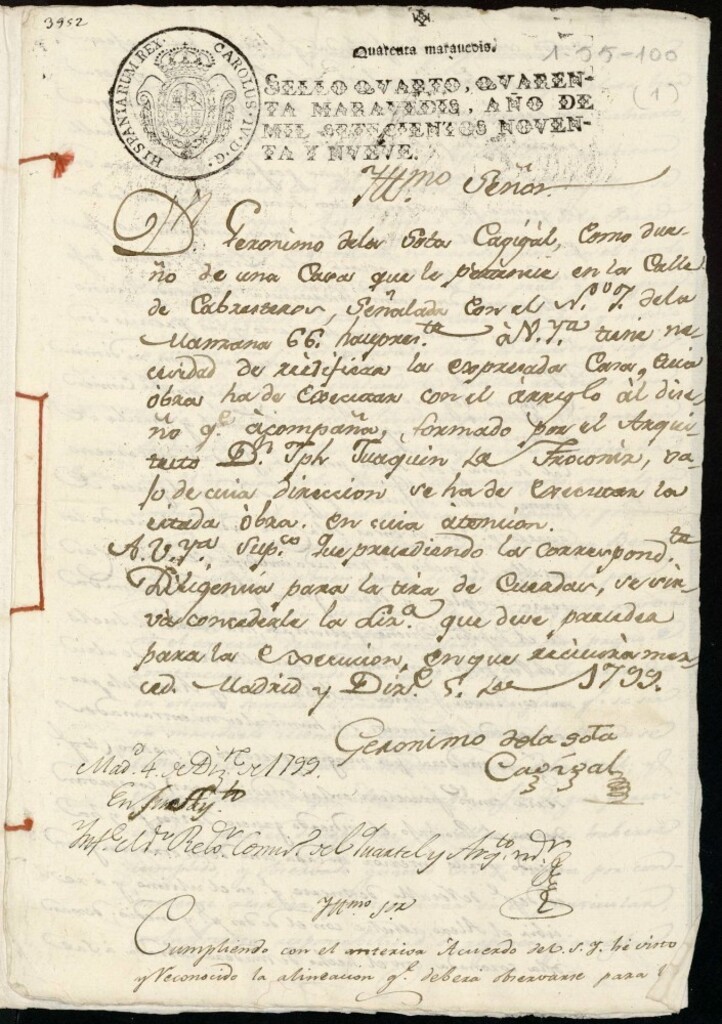 3952
Quarenta maravedis.
1-55-100
(1)
HISPANIARUM REX. CAROLUS·IV·D·G·
SELLO QVARTO, QVAREN-
TA MARAVEDIS, AÑO DE
MIL SETECIENTOS NOVEN-
TA Y NVEVE.
Yll.mo Señor.
D. Geronimo dela Sota Cagigal, como due-
ño de una Casa que le pertenece en la Calle
de Cabrestreros, Señalada con el N.º 7. dela
Manzana 66. haze pres.te à V. Y.a tiene ne-
cesidad de reedificar la expresada Casa, cuia
òbra ha de executar con el àrreglo àl dise-
ño q.e àcompaña, formado por el Arqui-
tecto D.n Jph Juaquin de Troconiz, va-
jo de cuia direccion se ha de executar la
citada òbra. en cuia àtencion.
A. V. Y.a Sup.co que precediendo las correspond.tes
Diligencias para la tira de Cuerdas, se sir-
va concederle la Liz.a que deve preceder
para la execucion, en que recivirà mer-
ced. Madrid y Diz.e de 1799.
Geronimo dela Sota
Cagigal
Mad.d 4. de Diz.re de 1799.
En su Ay.to
Ynf.e el S.r Rex.or Comis.o del Quartel y Arq.to m.or
Yllmo Sor
Cumpliendo con el anterior Acuerdo de V. S. Y. hè visto
y reconocido la alineacion q.e deberá observarse para